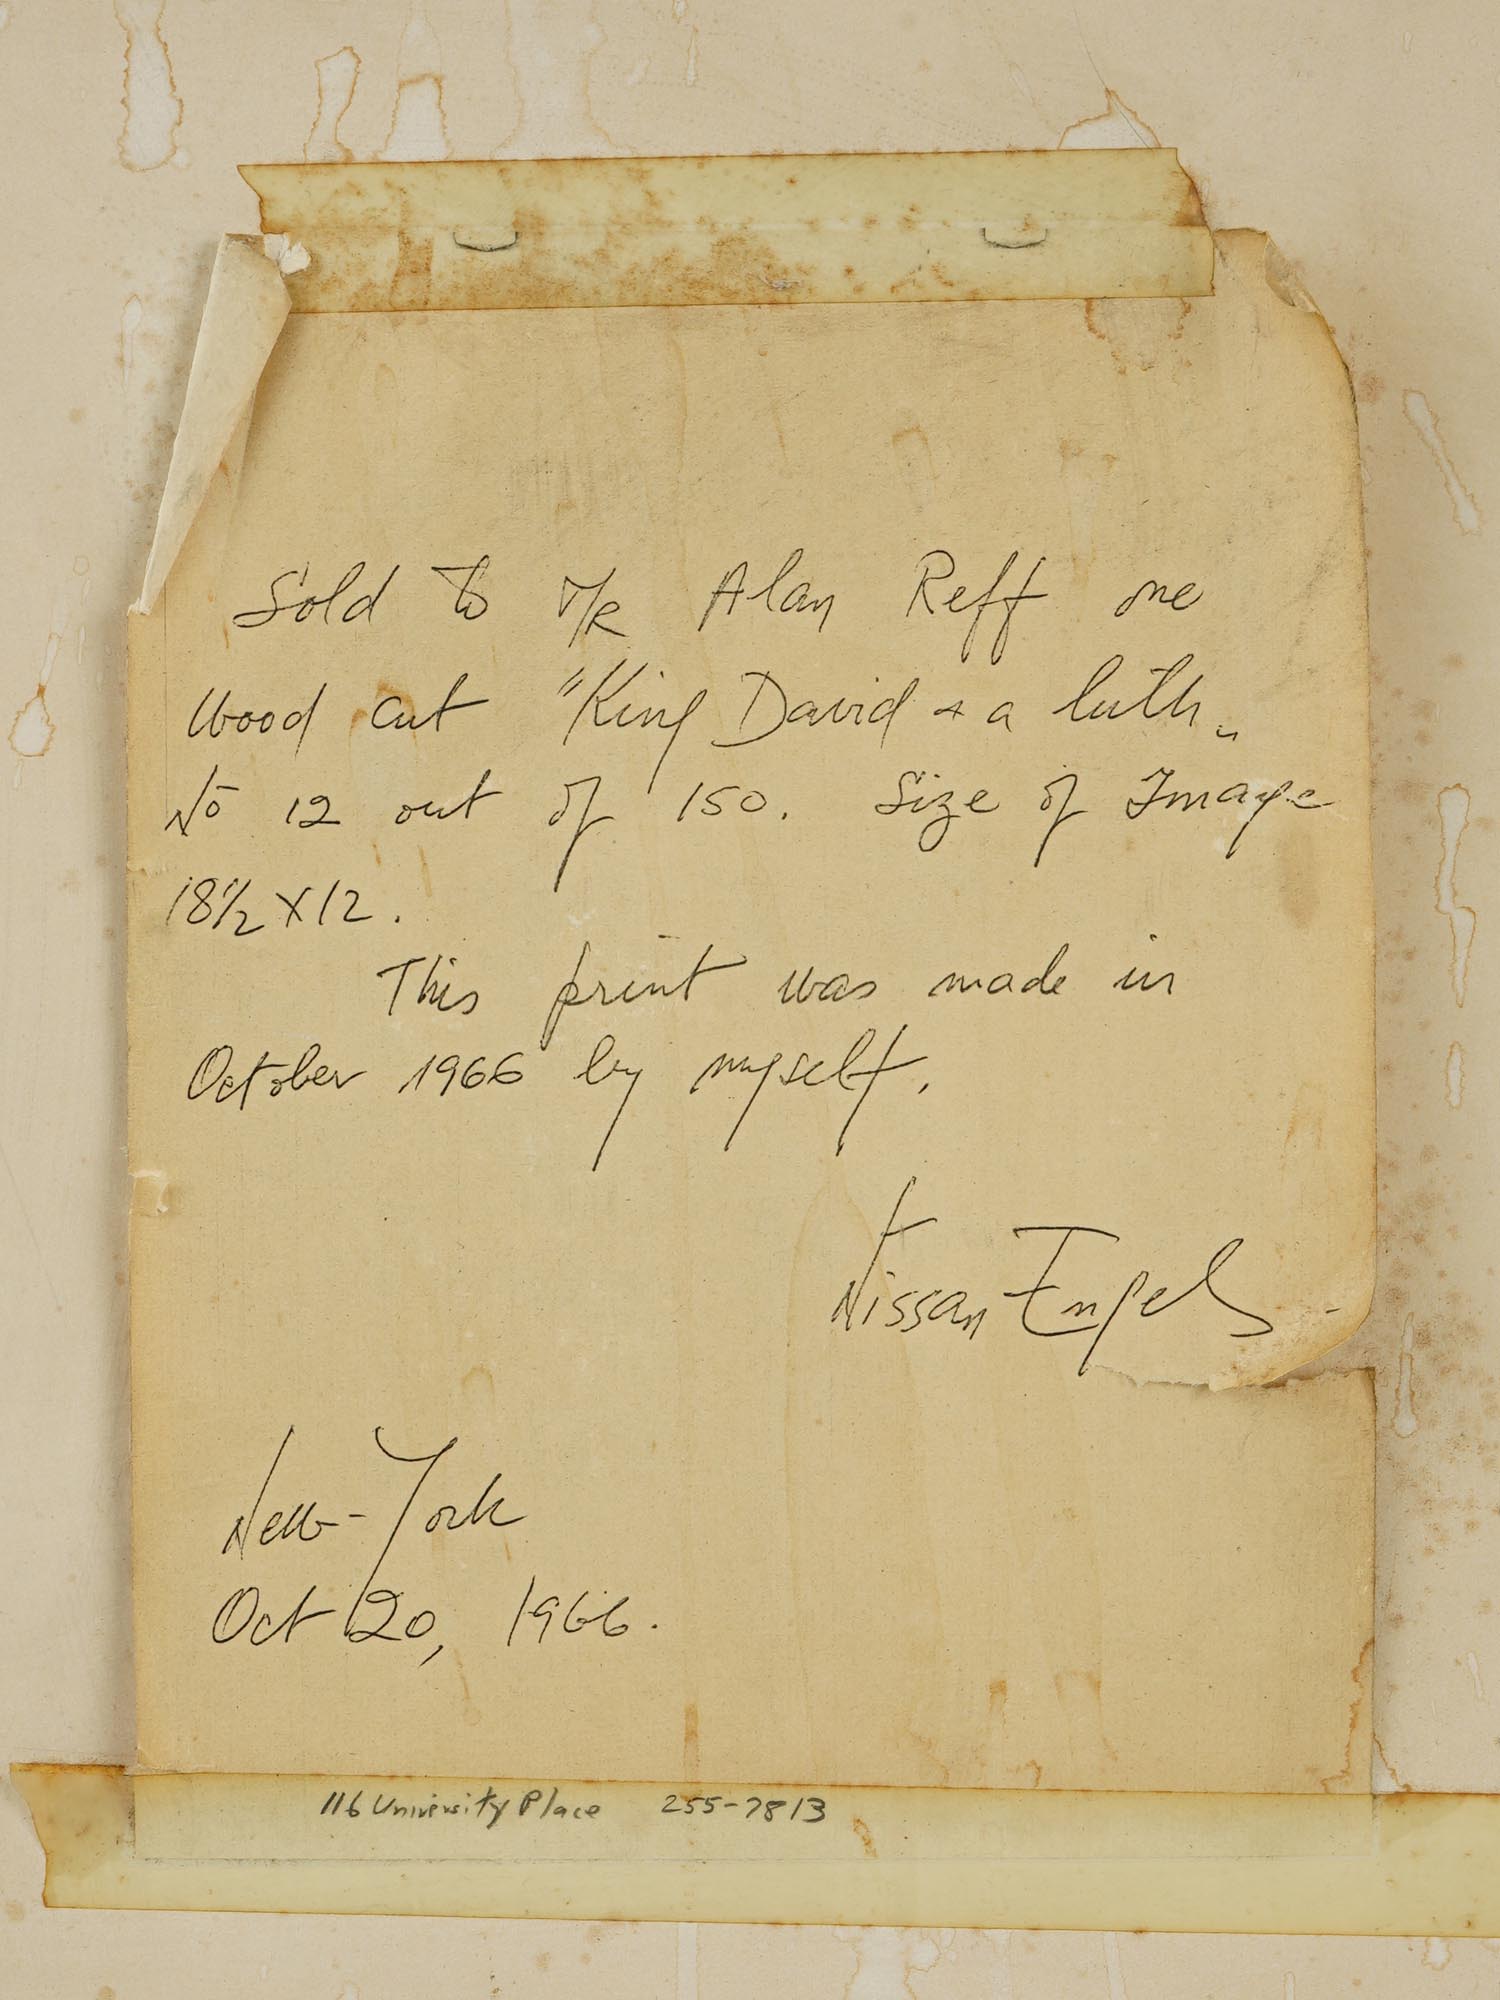 Sold to Mr Alan Reff one
Wood cut "King David + a luth„
No 12 out of 150. Size of Image
18½ X 12.
This print was made in
October 1966 by myself.
Nissan Engel
New-York
Oct 20, 1966.
116 University Place 255-7813